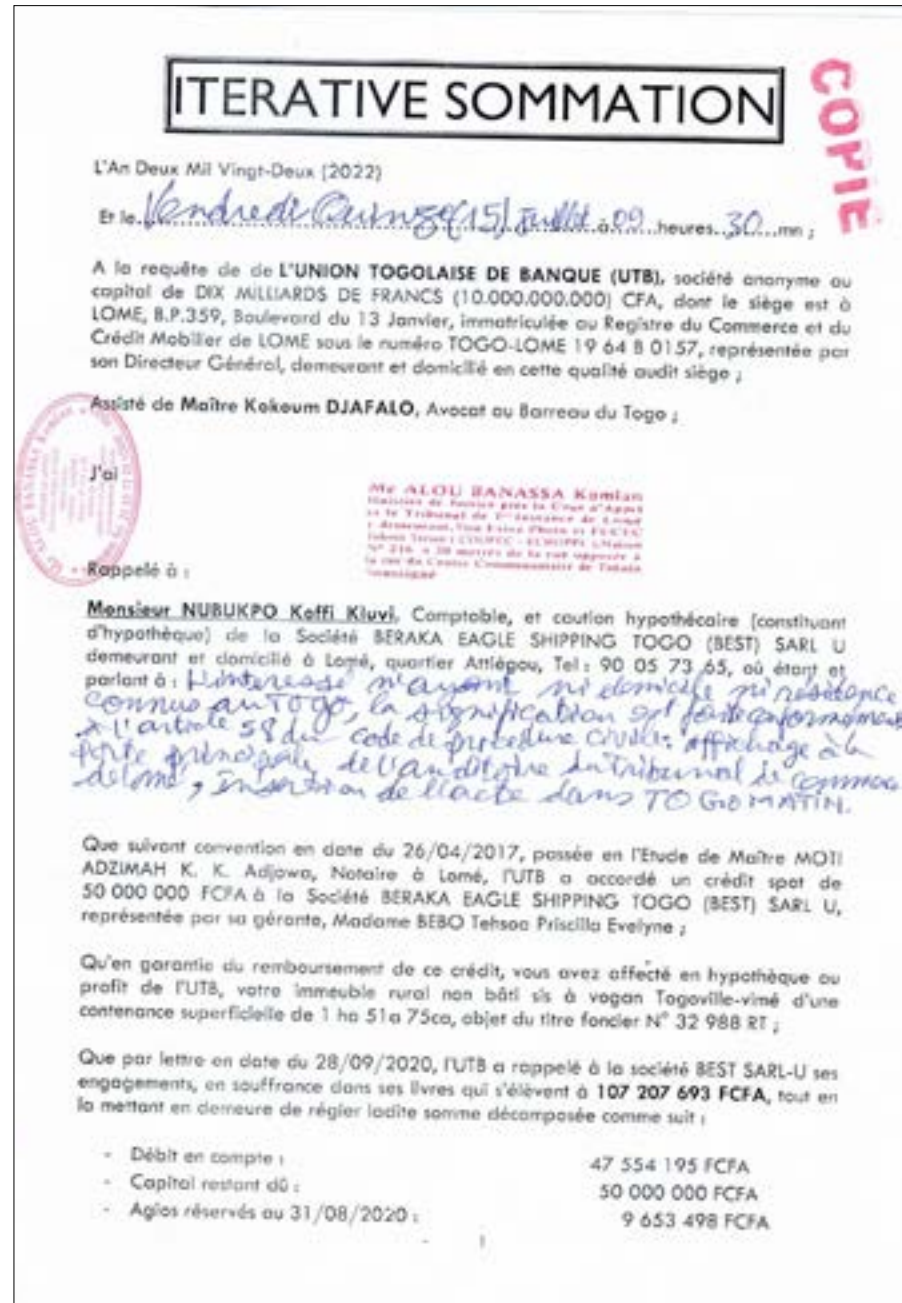 ITERATIVE SOMMATION
COPIE
L'An Deux Mil Vingt-Deux (2022)
Et le Vendredi Quinze (15) Juillet à 09 heures 30 mn ;
A la requête de de L'UNION TOGOLAISE DE BANQUE (UTB), société anonyme au
capital de DIX MILLIARDS DE FRANCS (10.000.000.000) CFA, dont le siège est à
LOME, B.P.359, Boulevard du 13 Janvier, immatriculée au Registre du Commerce et du
Crédit Mobilier de LOME sous le numéro TOGO-LOME 19 64 B 0157, représentée par
son Directeur Général, demeurant et domicilié en cette qualité audit siège ;
Assisté de Maître Kokoum DJAFALO, Avocat au Barreau du Togo ;
J'ai
Me ALOU BANASSA Komlan
Rappelé à :
Monsieur NUBUKPO Koffi Kluvi, Comptable, et caution hypothécaire (constituant
d'hypothèque) de la Société BERAKA EAGLE SHIPPING TOGO (BEST) SARL U
demeurant et domicilié à Lomé, quartier Attiégou, Tel : 90 05 73 65, où étant et
parlant à : L'interessé n'ayant ni domicile ni résidence
connus au TOGO, la signification est faite conformément
à l'article 58 du code de procédure civile: affichage à la
porte principale de l'auditoire du Tribunal de commerce
de lomé, insertion de l'acte dans TOGOMATIN.
Que suivant convention en date du 26/04/2017, passée en l'Etude de Maître MOTI
ADZIMAH K. K. Adjowa, Notaire à Lomé, l'UTB a accordé un crédit spot de
50 000 000 FCFA à la Société BERAKA EAGLE SHIPPING TOGO (BEST) SARL U,
représentée par sa gérante, Madame BEBO Tehsoa Priscilla Evelyne ;
Qu'en garantie du remboursement de ce crédit, vous avez affecté en hypothèque au
profit de l'UTB, votre immeuble rural non bâti sis à vogan Togoville-vimé d'une
contenance superficielle de 1 ha 51a 75ca, objet du titre foncier N° 32 988 RT ;
Que par lettre en date du 28/09/2020, l'UTB a rappelé à la société BEST SARL-U ses
engagements, en souffrance dans ses livres qui s'élèvent à 107 207 693 FCFA, tout en
la mettant en demeure de régler ladite somme décomposée comme suit :
- Débit en compte : 47 554 195 FCFA
- Capital restant dû : 50 000 000 FCFA
- Agios réservés au 31/08/2020 : 9 653 498 FCFA
1